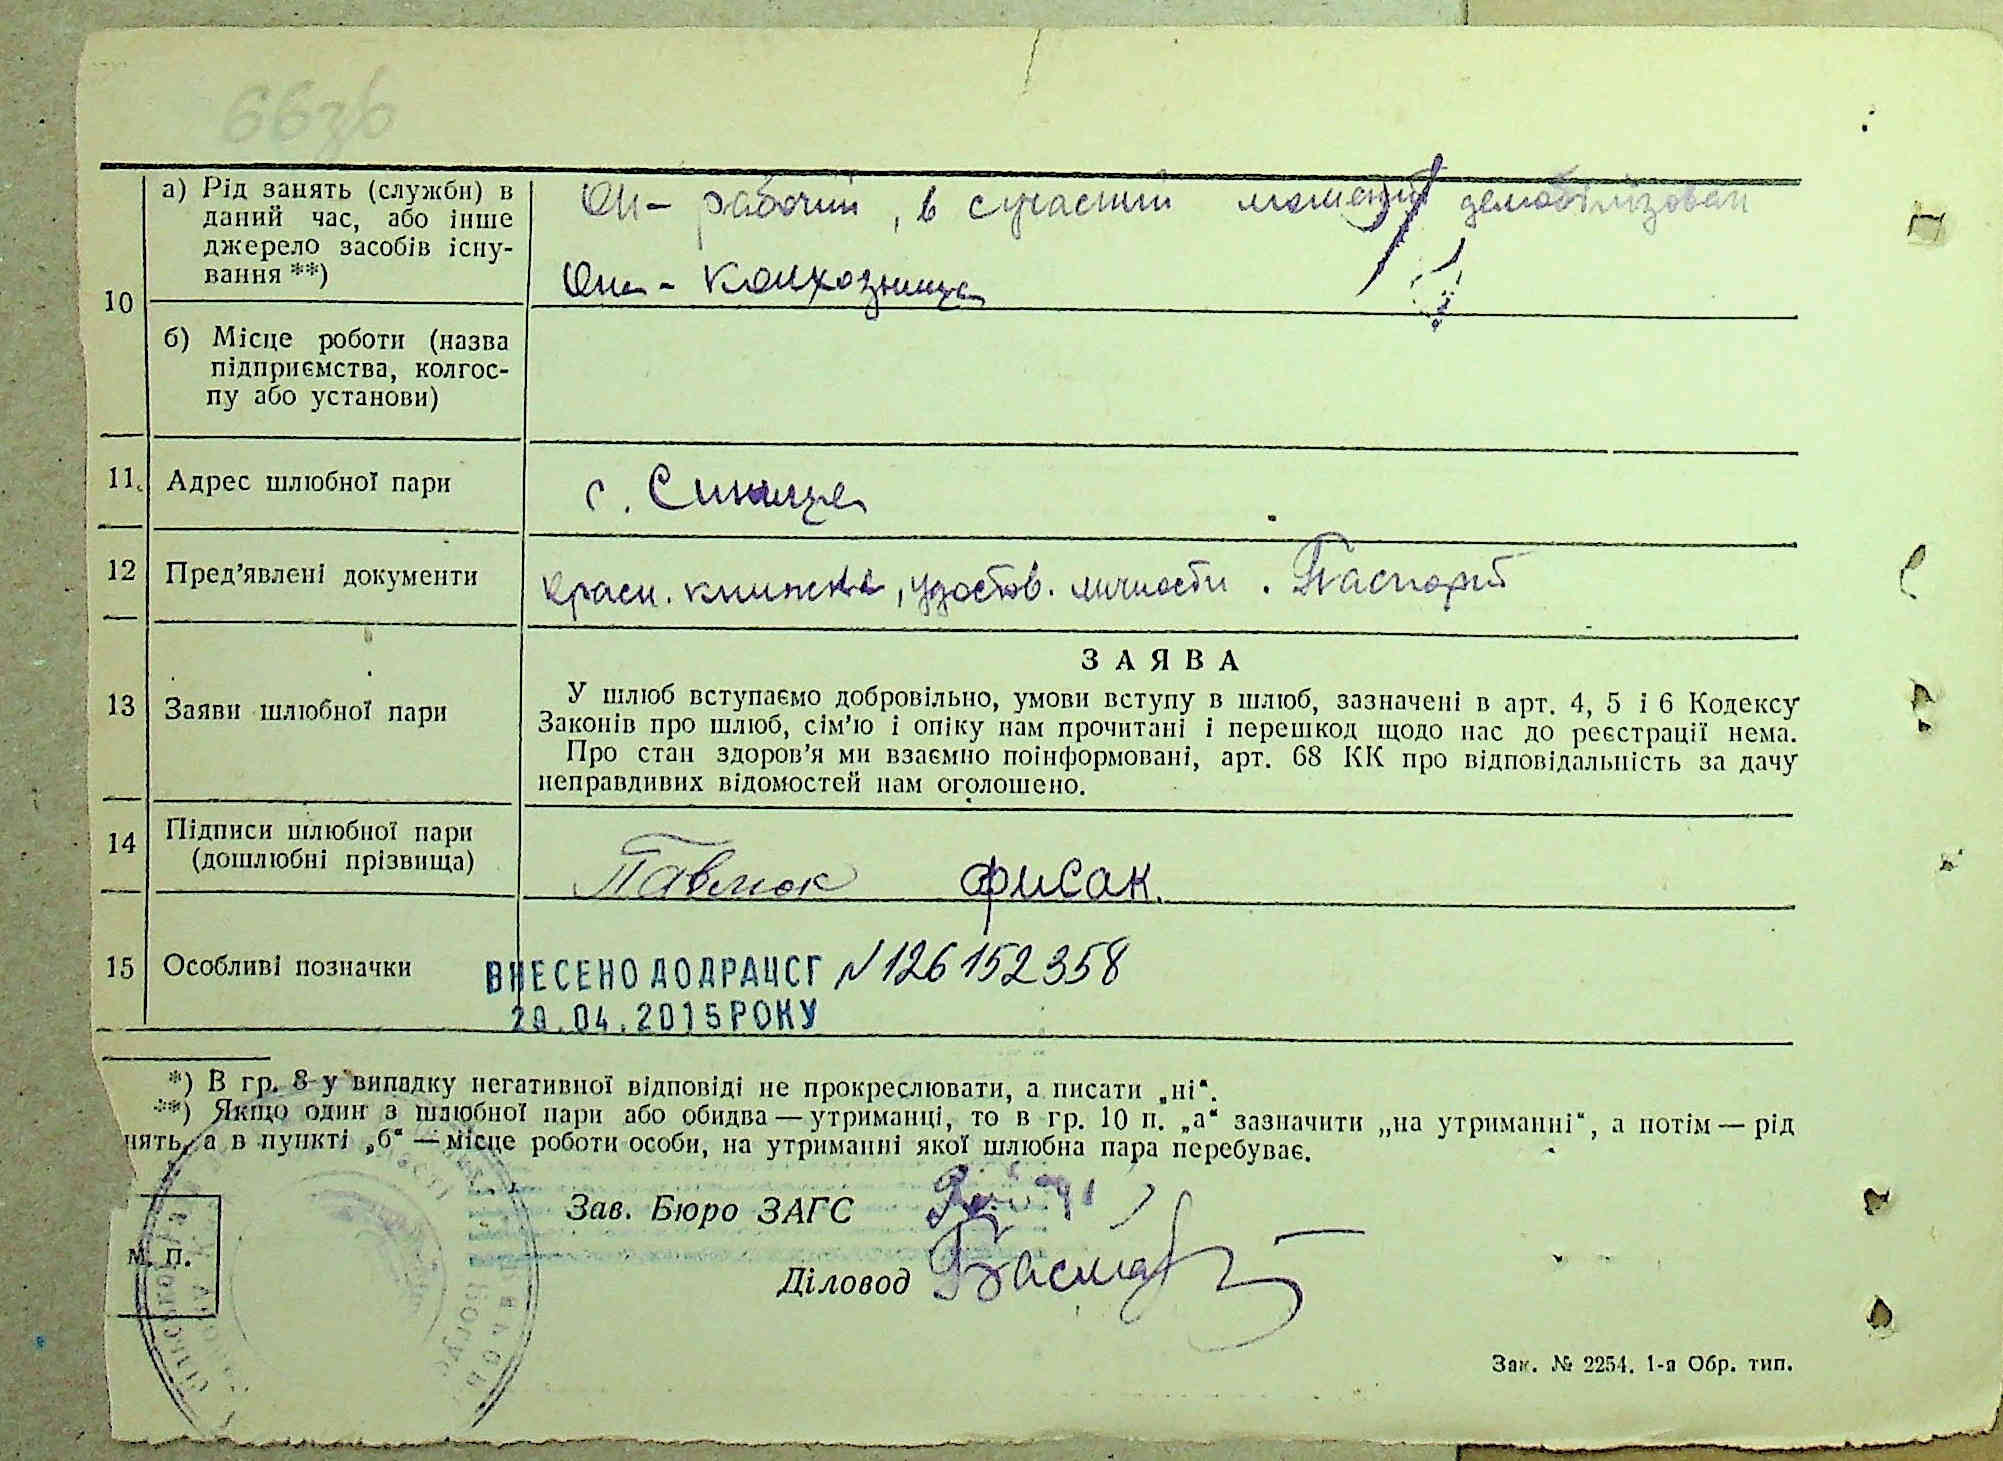 663б
10
а) Рід занять (служби) в
даний час, або інше
джерело засобів існу-
вання **)
Он – рабочий, в сучасний момент демобілізован
Она – колхозница
б) Місце роботи (назва
підприємства, колгос-
пу або установи)
11. Адрес шлюбної пари
с. Синица
12 Пред’явлені документи
красн. книжка, удостов. личности. Паспорт
13 Заяви шлюбної пари
ЗАЯВА
У шлюб вступаємо добровільно, умови вступу в шлюб, зазначені в арт. 4, 5 і 6 Кодексу
Законів про шлюб, сім’ю і опіку нам прочитані і перешкод щодо нас до реєстрації нема.
Про стан здоров’я ми взаємно поінформовані, арт. 68 КК про відповідальність за дачу
неправдивих відомостей нам оголошено.
14 Підписи шлюбної пари
(дошлюбні прізвища)
Павлюк Фисак.
15 Особливі позначки
ВНЕСЕНО ДО ДРАЦСГ N 126152358
29.04.2015 РОКУ
*) В гр. 8 у випадку негативної відповіді не прокреслювати, а писати „ні“.
**) Якщо один з шлюбної пари або обидва — утриманці, то в гр. 10 п. „а“ зазначити „на утриманні“, а потім — рід
нять, а в пункті „б“ — місце роботи особи, на утриманні якої шлюбна пара перебуває.
Зав. Бюро ЗАГС
М. П.
Діловод
Зак. № 2254. 1-а Обр. тип.